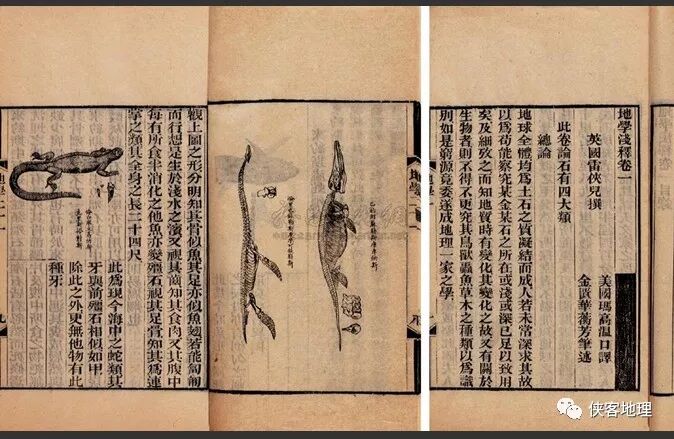 地學淺釋卷一
英國雷俠兒撰
美國瑪高溫口譯
金匱華蘅芳筆述
此卷論石有四大類
總論
地球全體均為土石之質凝結而成人若未常深求其故
以為苟能察究某金某石之所在或淺或深已足以致用
矣及細攷之而知地質時有變化其變化之故又有關於
生物者則不得不更究其鳥獸蟲魚草木之種類以為識
別如是窮源竟委遂成地理一家之學
地學
觀上圖之形分明知其骨似魚其足亦似魚翅若能匍匐
而行想是生於淺水之濱又視其齒知其食肉又其腹中
每有所食半消化之他魚亦變殭石視其足骨知其為連
掌之類其全身之長二十四尺
此為現今海中之蛇類其
牙與前殭石相似如甲
除此之外更無他物有此
種牙
侠客地理